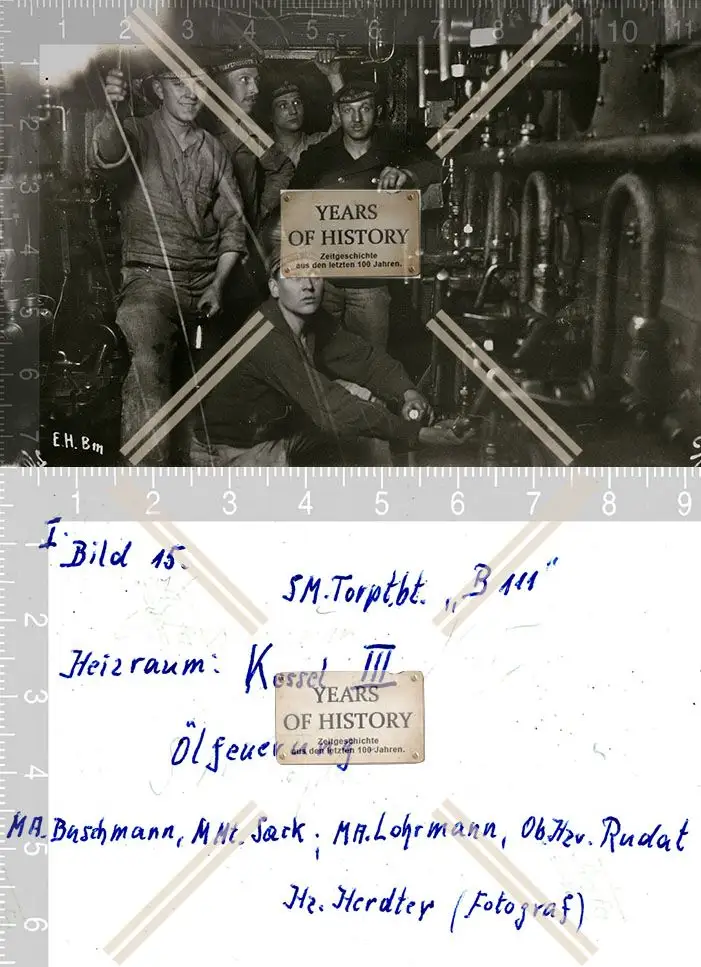 2 3 4 5 6 7 8 9 10 11
YEARS
OF HISTORY
Zeitgeschichte
aus den letzten 100 Jahren.
E.H. Bm
1 2 3 4 5 6 7 8 9
I. Bild 15.
SM. Torpt.bt. „B 111“
Heizraum: Kessel III
YEARS
OF HISTORY
Zeitgeschichte
aus den letzten 100 Jahren.
Ölfeuerung
MA. Buschmann, MMt. Sack, MA. Lohrmann, Ob.Hzr. Rudat
Hz. Herdter (Fotograf)